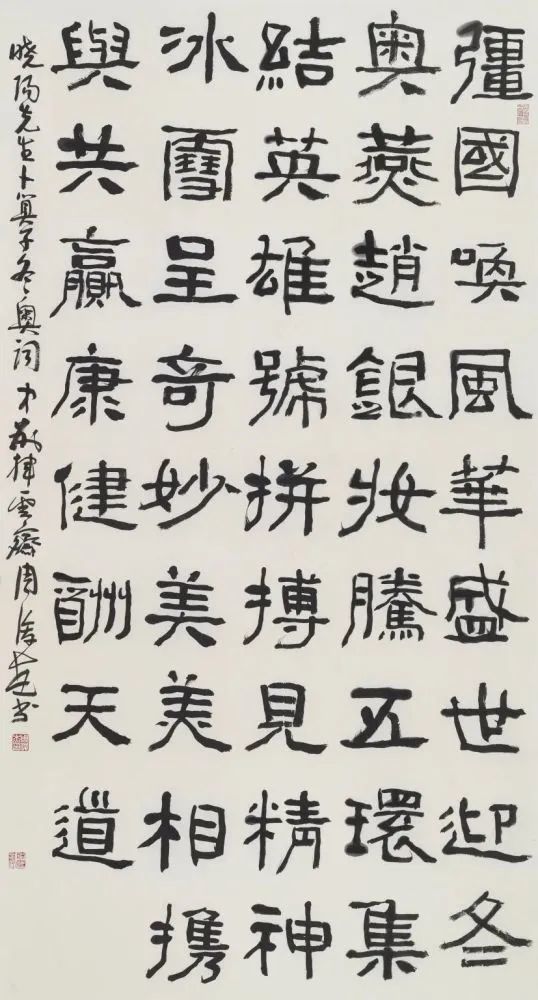 彊國喚風華盛世迎冬
奧燕趙銀妝騰五環集
結英雄號拼搏見精神
冰雪呈奇妙美美相攜
與共贏康健酬天道
曉陽先生卜算子冬奧詞